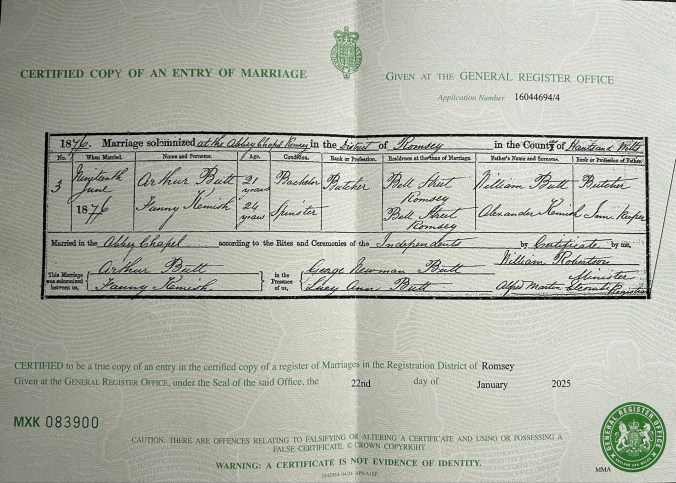 CERTIFIED COPY OF AN ENTRY OF MARRIAGE
GIVEN AT THE GENERAL REGISTER OFFICE
Application Number 16044694/4
1876. Marriage solemnized at the Abbey Chapel Romsey in the District of Romsey in the County of Hants and Wilts
No. When Married. Name and Surname. Age. Condition. Rank or Profession. Residence at the time of Marriage. Father's Name and Surname. Rank or Profession of Father.
3 Nineteenth June 1876 Arthur Butt 21 years Bachelor Butcher Bell Street Romsey William Butt Butcher
Fanny Kemish 24 years Spinster Bell Street Romsey Alexander Kemish Inn Keeper
Married in the Abbey Chapel according to the Rites and Ceremonies of the Independents by Certificate by me,
William Robertson
Minister
This Marriage was solemnized between us, Arthur Butt Fanny Kemish in the Presence of us, George Newman Butt Lucy Ann Butt
Alfred Martin Registrar
CERTIFIED to be a true copy of an entry in the certified copy of a register of Marriages in the Registration District of Romsey
Given at the GENERAL REGISTER OFFICE, under the Seal of the said Office, the 22nd day of January 2025
MXK 083900
CAUTION: THERE ARE OFFENCES RELATING TO FALSIFYING OR ALTERING A CERTIFICATE AND USING OR POSSESSING A
FALSE CERTIFICATE. © CROWN COPYRIGHT
WARNING: A CERTIFICATE IS NOT EVIDENCE OF IDENTITY.
GENERAL REGISTER OFFICE
ENGLAND AND WALES
MMA